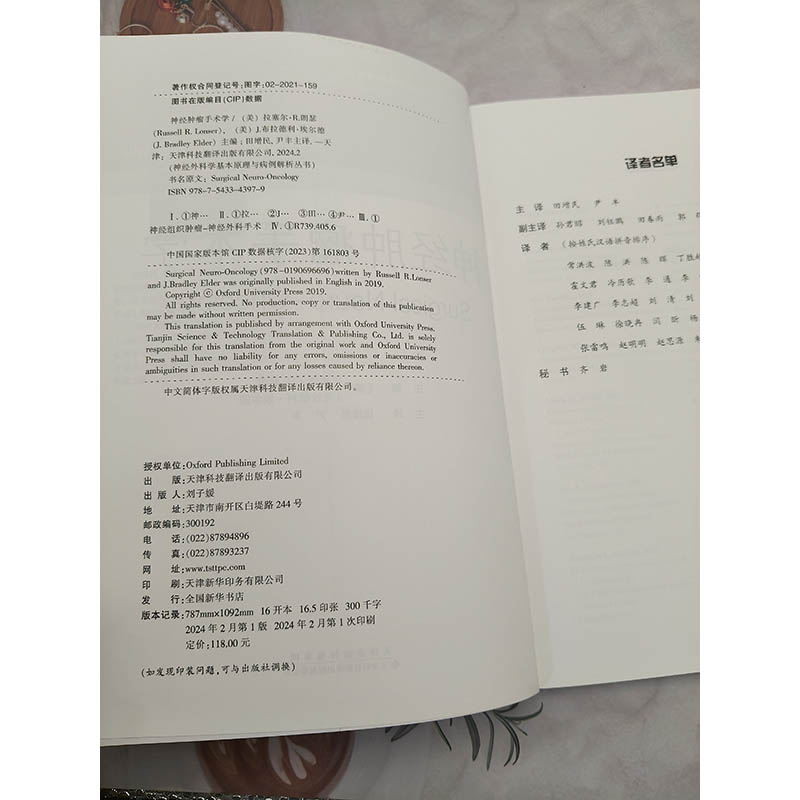 著作权合同登记号:图字:02-2021-159
图书在版编目(CIP)数据
神经肿瘤手术学/(美)拉塞尔·R.朗瑟
(Russell R. Lonser),(美)J.布拉德利·埃尔德
(J. Bradley Elder)主编;田增民,尹丰主译.—天
津:天津科技翻译出版有限公司,2024.2
(神经外科学基本原理与病例解析丛书)
书名原文:Surgical Neuro-Oncology
ISBN 978-7-5433-4397-9
Ⅰ.①神… Ⅱ.①拉… ②J… ③田… ④尹… Ⅲ.①
神经组织肿瘤-神经外科手术 Ⅳ.①R739.405.6
中国国家版本馆CIP数据核字(2023)第161803号
Surgical Neuro-Oncology (978-0190696696) written by Russell R.Lonser
and J.Bradley Elder was originally published in English in 2019.
Copyright © Oxford University Press 2019.
All rights reserved. No production, copy or translation of this publication
may be made without written permission.
This translation is published by arrangement with Oxford University Press.
Tianjin Science & Technology Translation & Publishing Co., Ltd. is solely
responsible for this translation from the original work and Oxford University
Press shall have no liability for any errors, omissions or inaccuracies or
ambiguities in such translation or for any losses caused by reliance thereon.
中文简体字版权属天津科技翻译出版有限公司。
授权单位:Oxford Publishing Limited
出 版:天津科技翻译出版有限公司
出 版 人:刘子媛
地 址:天津市南开区白堤路244号
邮政编码:300192
电 话:(022)87894896
传 真:(022)87893237
网 址:www.tsttpc.com
印 刷:天津新华印务有限公司
发 行:全国新华书店
版本记录:787mm×1092mm 16开本 16.5印张 300千字
2024年2月第1版 2024年2月第1次印刷
定价:118.00元
(如发现印装问题,可与出版社调换)
译者名单
主 译 田增民 尹 丰
副主译 孙君昭 刘钰鹏 田春雨 郭
译 者 (按姓氏汉语拼音排序)
常洪波 陈 洪 陈 晖 丁胜
霍文君 冷历歌 李 通 李
李建广 李志超 刘 清 刘
伍 琳 徐晓冉 闫 昕 杨
张雷鸣 赵明明 赵思源
秘 书 齐 岩